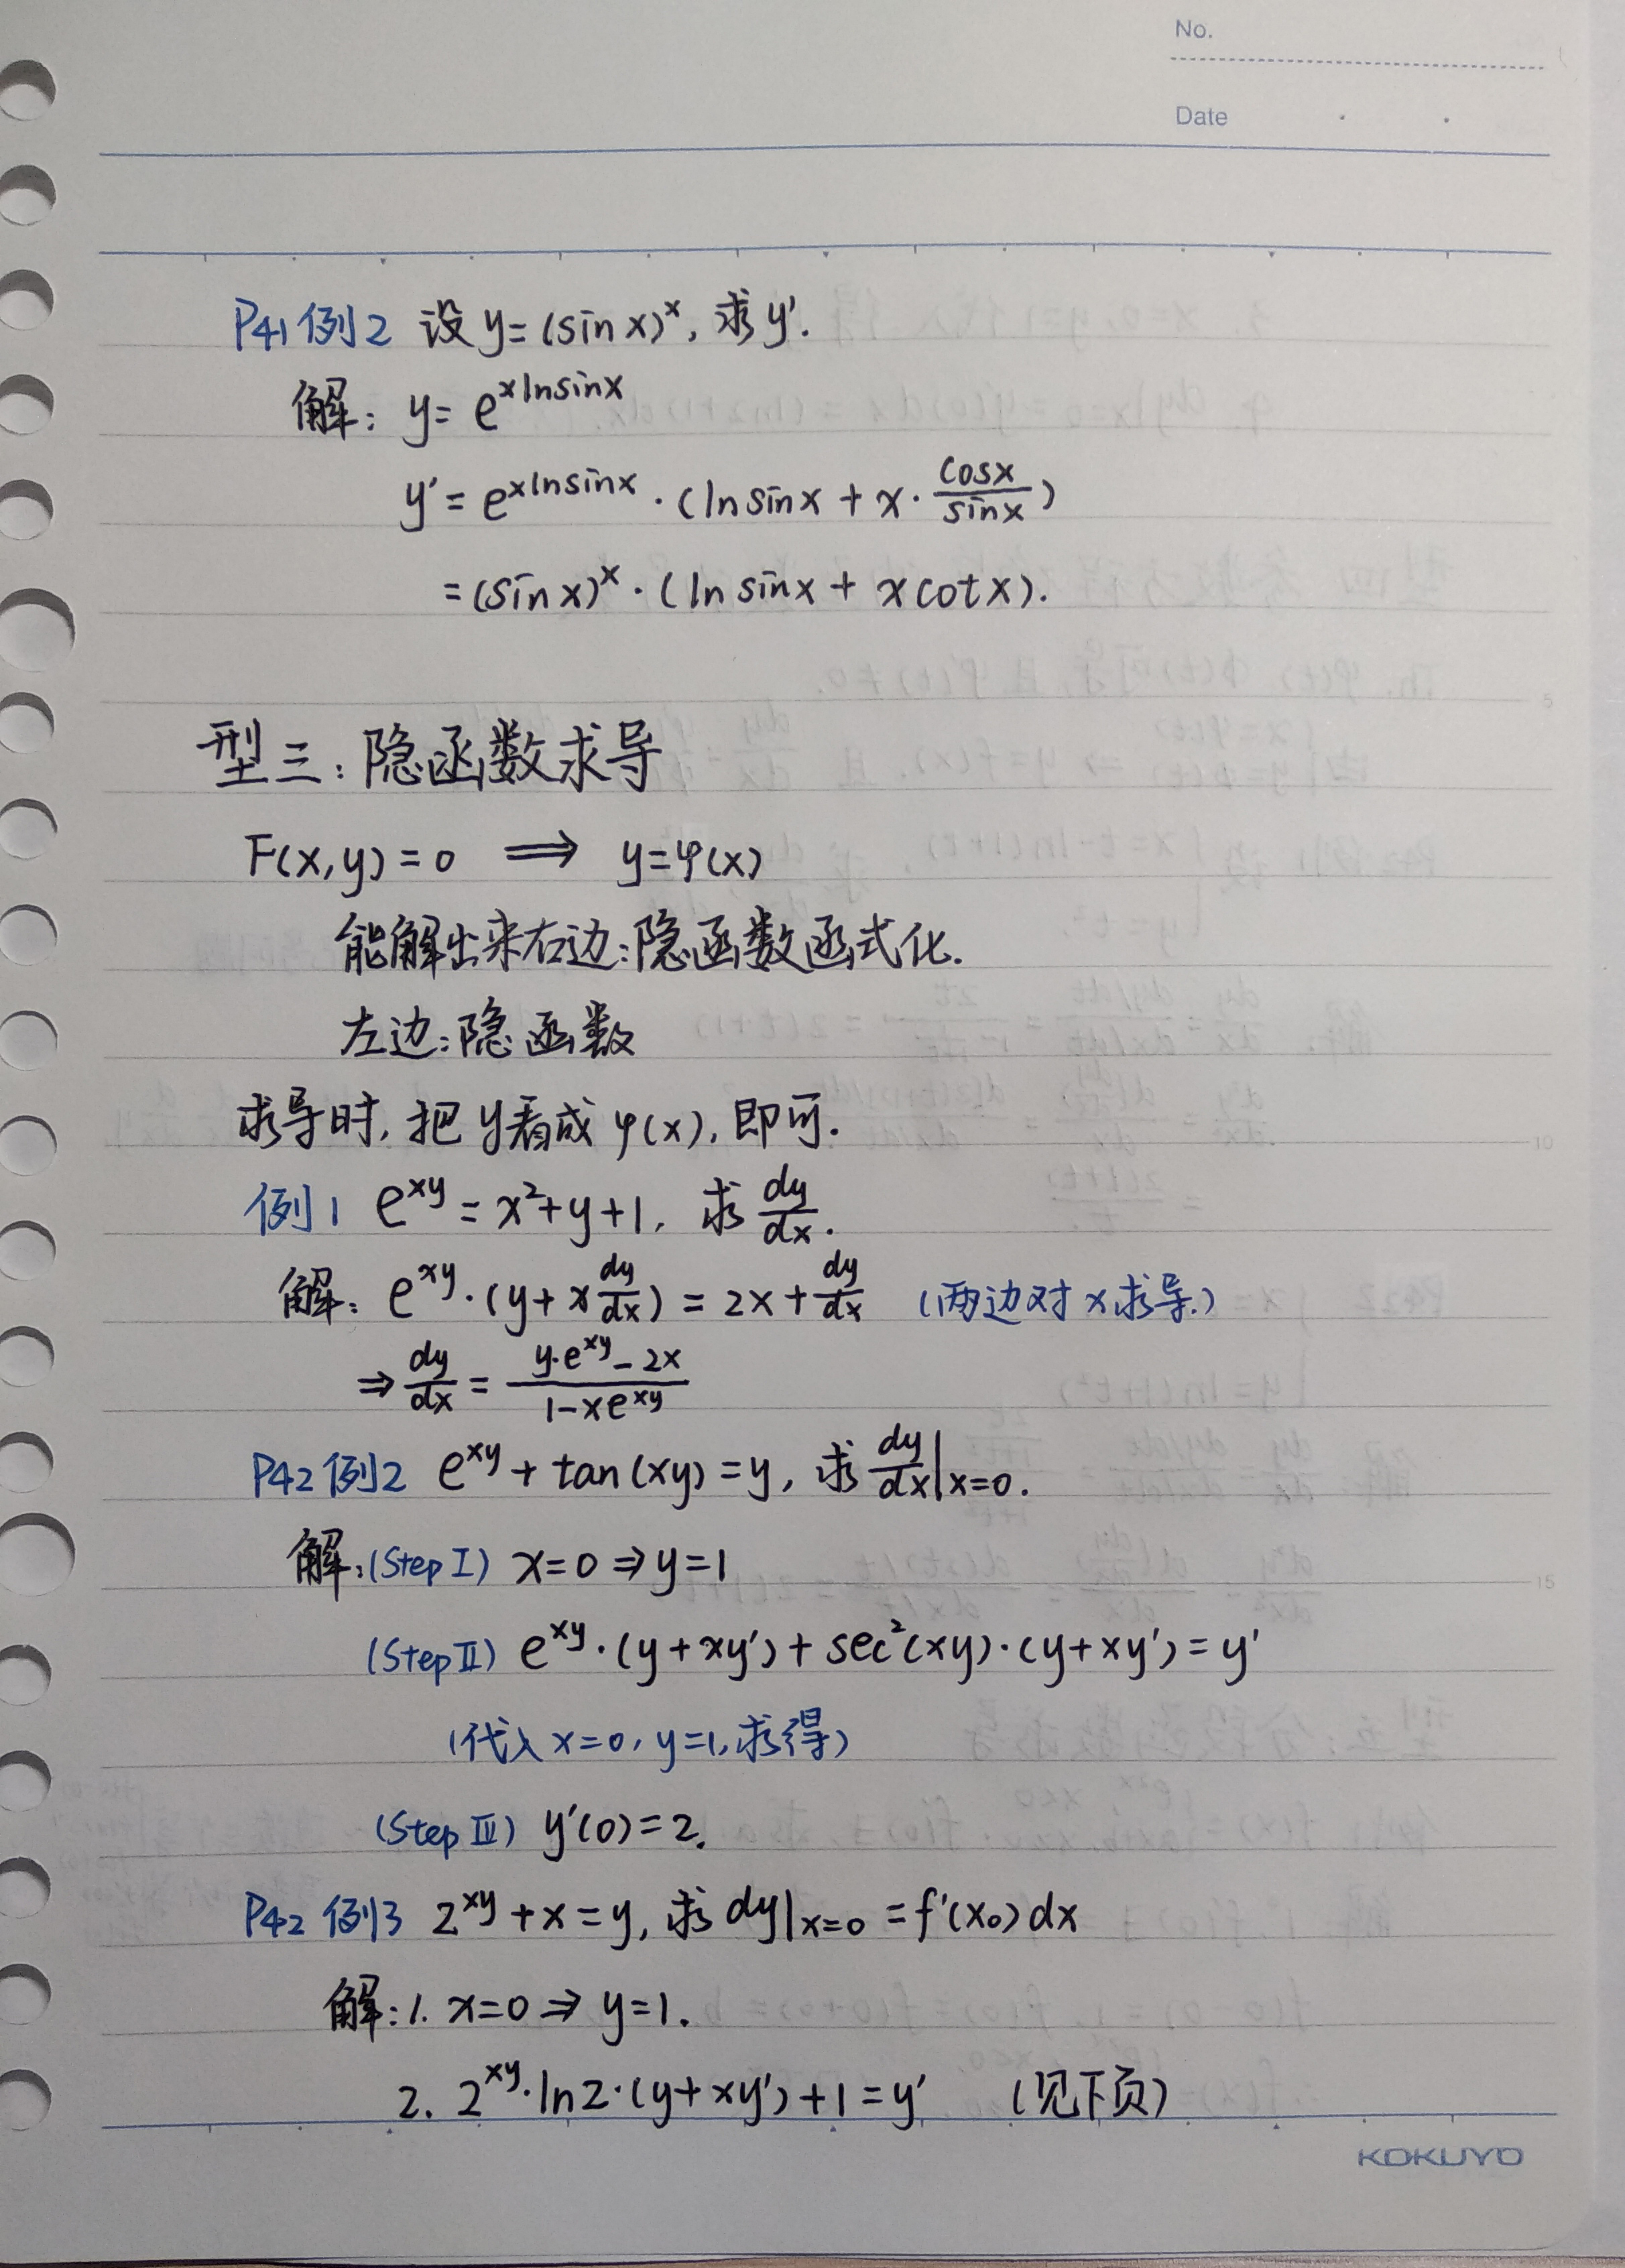 No.
Date
P41 例2 设 y=(sin x)^x, 求 y'.
解: y= e^{xlnsinx}
y'= e^{xlnsinx} · (ln sinx + x · \frac{cosx}{sinx})
=(sin x)^x · (ln sinx + xcotx).
型三: 隐函数求导
F(x,y)=0 ⟹ y=φ(x)
能解出来右边:隐函数函式化.
左边:隐函数
求导时, 把 y看成 φ(x), 即可.
例1 e^{xy} = x²+y+1, 求 \frac{dy}{dx}.
解: e^{xy} · (y+x\frac{dy}{dx}) = 2x+\frac{dy}{dx} (两边对x求导.)
⇒ \frac{dy}{dx} = \frac{y·e^{xy}-2x}{1-xe^{xy}}
P42 例2 e^{xy} + tan(xy) = y, 求 \frac{dy}{dx}|_{x=0}.
解:(Step Ⅰ) x=0 ⇒ y=1
(Step Ⅱ) e^{xy} · (y+xy') + sec²(xy) · (y+xy') = y'
(代入 x=0, y=1,求得)
(Step Ⅲ) y'(0)=2.
P42 例3 2^{xy} + x = y, 求 dy|_{x=0} = f'(x₀)dx
解: 1. x=0 ⇒ y=1.
2. 2^{xy} · ln2 · (y+xy') + 1 = y' (见下页)
KOKUYO